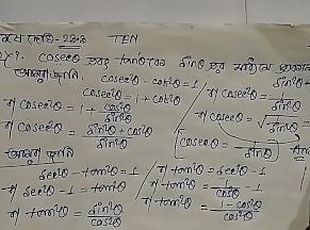 কষে দেখি-23.3 TEN
Q1. cosecθ এবং tanθ কে sinθ এর মাধ্যমে
আমরা জানি,
cosec²θ - cot²θ = 1
cosec²θ = 1 + cot²θ
বা cosec²θ = 1 + cos²θ/sin²θ
বা cosec²θ = sin²θ + cos²θ/sin²θ
বা cosec²θ = 1/sin²θ
বা cosecθ = √1/sin²θ
cosecθ = 1/sinθ
আমরা জানি
sec²θ - tan²θ = 1
বা sec²θ - 1 = tan²θ
বা tan²θ = sin²θ/cos²θ
বা tan²θ = sec²θ - 1
বা tan²θ = 1/cos²θ - 1
বা tan²θ = 1 - cos²θ/cos²θ